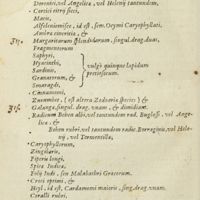 Doronici, vel Angelicæ, vel Helenij tantundem,
Corticis citri sicci,
Macis,
Alfelenieniscẽ, id est, sem. Ocymi Caryophyllati,
Ambræ cineritiæ, &
Margaritarum splendidarum, singul. drag. duas,
Fragmentorum
Saphyri,
Hyacinthi,
Sardinis,
Granatorum, &
Smaragdi,
vulgò quinque lapidum
pretiosorum.
Cinnamomi,
Zurumbet, (est altera Zedoariæ species) &
Galangæ, singul. drag. unam, & dimidiam.
Radicum Behen albi, vel tantundem rad. Buglossi, vel Angelicæ, &
Behen rubri, vel tantundem radic. Borraginis, vel Helenij, vel Tormentillæ,
Caryophyllorum,
Zingiberis,
Piperis longi,
Spicæ Indicæ,
Folij Indi, seu Malabathri Græcorum,
Croci optimi, &
Heyl, id est, Cardamomi maioris, sing. drag. unam.
Coralli rubri,